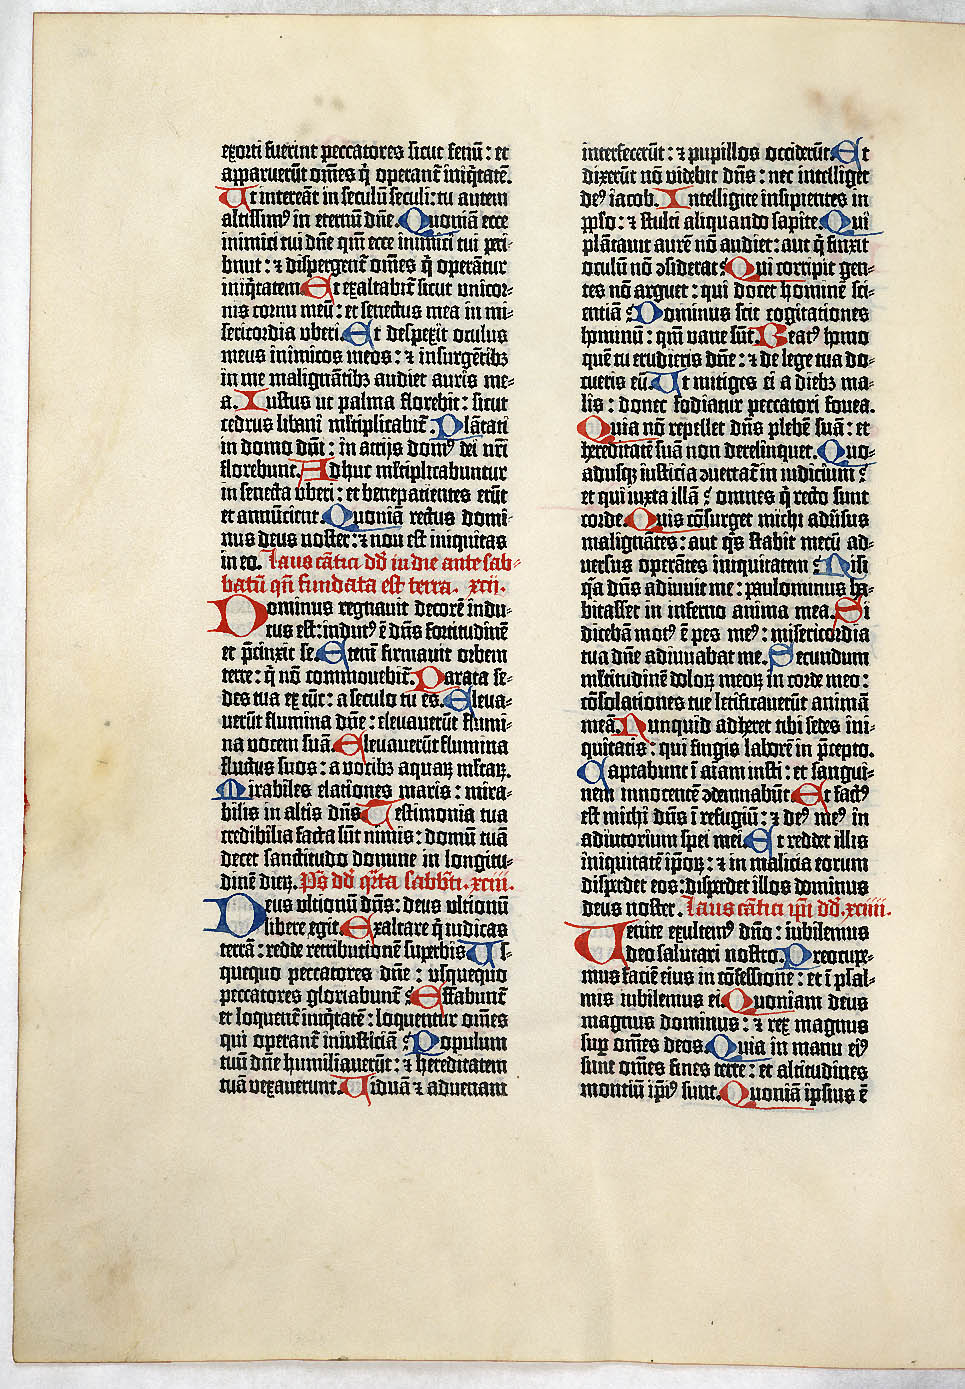 exorti fuerint peccatores sicut fenū: et
apparuerūt om̄es q̇ operant᷑ iniq̇tatē.
Ut intereāt in seculū seculi: tu autem
altissimꝰ in eternū dn̄e. Quoniā ecce
inimici tui dn̄e qm̄ ecce inimici tui peri-
bunt: ⁊ dispergent᷑ om̄es q̇ operātur
iniq̇tatem Et exaltabit᷑ sicut unicor-
nis cornu meū: et senectus mea in mi-
sericordia uberi. Et despexit oculus
meus inimicos meos: ⁊ insurgētibꝫ
in me malignātibꝫ audiet auris me-
a. Iustus ut palma florebit: sicut
cedrus libani ml̓tiplicabit᷑. Plātati
in domo dn̄i: in atrijs domꝰ dei nr̄i
florebunt. Adhuc ml̓tiplicabuntur
in senecta uberi: et benepacientes erūt
et annūcient. Quoniā rectus domi-
nus deus noster: ⁊ non est iniquitas
in eo. Laus cātici dd̄ in die ante sab-
batū qn̄ fundata est terra. xcij.
Dominus regnavit decorē indu-
tus est: indutꝰ ē dn̄s fortitudinē
et p̄cinxit se. Eteni᷑ firmavit orbem
terre: q̇ nō commovebit᷑. Parata se-
des tua ex tūc: a seculo tu es. Eleva-
verūt flumina dn̄e: elevaverūt flumi-
na vocem suā. Elevaverūt flumina
fluctus suos: a vocibꝫ aquaꝝ ml̓taꝝ.
Mirabiles elationes maris: mira-
bilis in altis dn̄s Testimonia tua
credibilia facta sūt nimis: domū tuā
decet sanctitudo domine in longitu-
dinē dieꝝ. Ps̄ dd̄ q̇rta sabb̄ti. xciii.
Deus ultionū dn̄s: deus ultionū
libere egit. Exaltare q̇ iudicas
terrā: redde retributionē superbis Us-
quequo peccatores dn̄e: usquequo
peccatores gloriabunt᷑: Effabunt᷑
et loquent᷑ iniq̇tatē: loquentur om̄es
qui operant᷑ iniusticiā: Populum
tuū dn̄e humiliaverūt: ⁊ hereditatem
tuā vexaverunt. Viduā ⁊ advenam
interfecerūt: ⁊ pupillos occiderūt. Et
dixerūt nō videbit dn̄s: nec intelliget
deꝰ iacob. Intelligite insipientes in
ppl̓o: ⁊ stulti aliquando sapite. Qui
plātavit aurē nō audiet: aut q̇ finxit
oculū nō ꝯsiderat: Qui corripit gen-
tes nō arguet: qui docet hominē sci-
entiā: Dominus scit cogitationes
hominū: qm̄ vane sūt. Beatꝰ homo
quē tu erudieris dn̄e: ⁊ de lege tua do-
cueris eū. Ut mitiges ei a diebꝫ ma-
lis: donec fodiatur peccatori fovea.
Quia nō repellet dn̄s plebē suā: et
hereditatē suā non derelinquet. Quo-
adusqꝫ iusticia ꝯvertat᷑ in iudicium:
et qui iuxta illā: omnes q̇ recto sunt
corde. Quis cōsurget michi adv̓sus
malignātes: aut q̇s stabit mecū ad-
versus operātes iniquitatem: Nisi
q̇a dn̄s adiuvit me: paulominus ha-
bitasset in inferno anima mea. Si
dicebā motꝰ ē pes meꝰ: misericordia
tua dn̄e adiuvabat me. Secundum
ml̓titudinē doloꝝ meoꝝ in corde meo:
cōsolationes tue letificaverūt animā
meā. Nunquid adheret tibi sedes ini-
quitatis: qui fingis laborē in p̄cepto.
Captabunt i aīam iusti: et sangui-
nem innocentē ꝯdemnabūt Et factꝰ
est michi dn̄s i refugiū: ⁊ deꝰ meꝰ in
adiutorium spei mei. Et reddet illis
iniquitatē ip̄oꝝ: ⁊ in malicia eorum
disp̱det eos: disp̱det illos dominus
deus noster. Laus cātici ip̄i dd̄. xciiii.
Venite exultemꝰ dn̄o: iubilemus
deo salutari nostro. Preoccupe-
mus faciē eius in cōfessione: et i psal-
mis iubilemus ei. Quoniam deus
magnus dominus: ⁊ rex magnus
sup̱ om̄es deos. Quia in manu eiꝰ
sunt om̄es fines terre: et altitudines
montiū ip̄iꝰ sunt. Quoniā ipsius ē